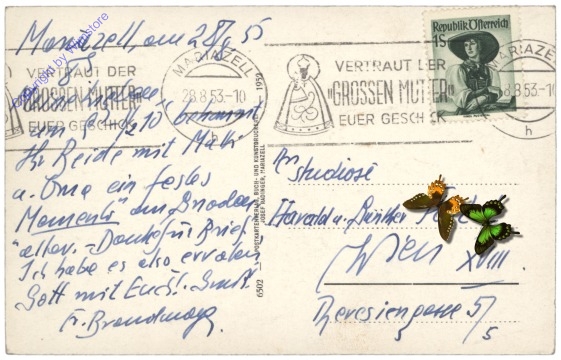 Mariazell, am 28/8 53
Copyright by Wienstore
MARIAZELL
28.8.53.-10
h
VERTRAUT DER
"GROSSEN MUTTER"
EUER GESCHICK
VERTRAUT DER
"GROSSEN MUTTER"
EUER GESCHICK
MARIAZELL
28.8.53.-10
h
1S
Republik Österreich
Ihr Beide mit Mutti
u. Oma ein festes
Memento am Gnaden
altar. - Danke für Brief
Ich habe es also erraten
Gott mit Euch!
6502
POSTKARTENVERLAG, BUCH- UND KUNSTDRUCKEREI
JOSEF RADINGER, MARIAZELL
1950
An
studiosi
Harald u.
Wien
XVIII.
Theresiengasse 5/
/5